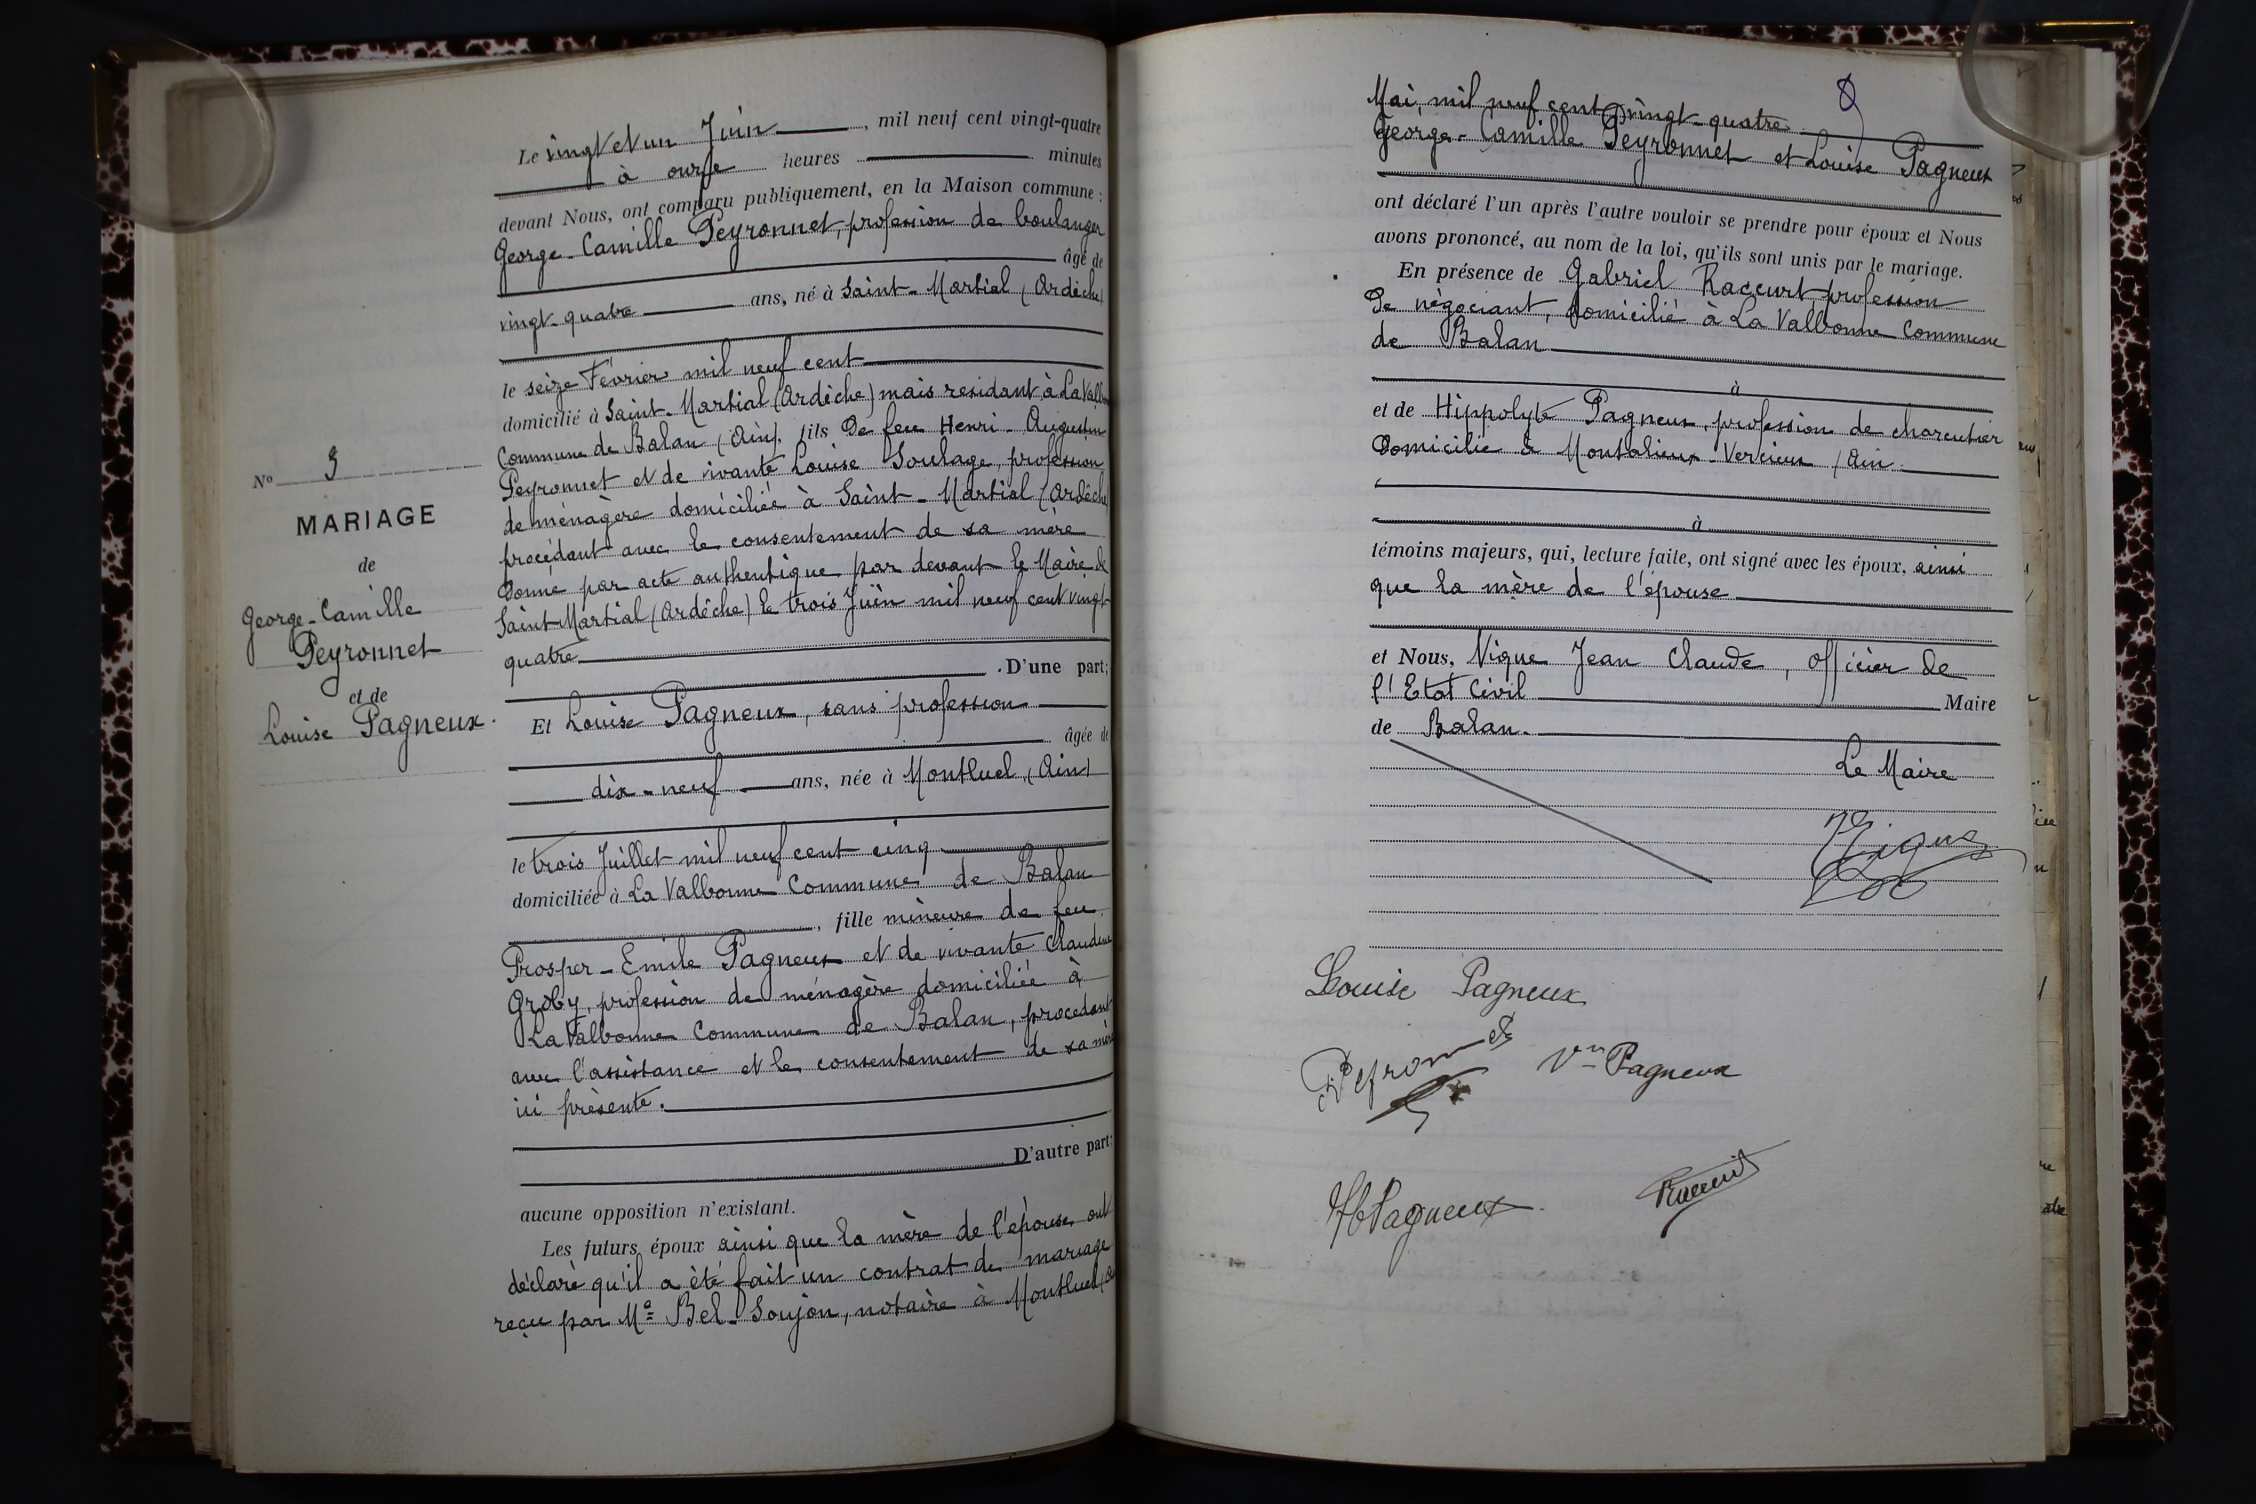 Le vingt et un Juin, mil neuf cent vingt-quatre
à onze heures minutes
devant Nous, ont comparu publiquement, en la Maison commune :
George-Camille Peyronnet, profession de boulanger
âgé de
vingt-quatre ans, né à Saint-Martial (Ardèche)
le seize Février mil neuf cent
domicilié à Saint-Martial (Ardèche) mais residant à La Valbonne
Commune de Balan (Ain), fils De feu Henri-Augustin
Peyronnet et de vivante Louise Soulage, profession
de ménagère domiciliée à Saint-Martial (Ardèche)
procédant avec le consentement de sa mère
Donné par acte authentique par devant le Maire de
Saint-Martial (Ardèche) le trois Juin mil neuf cent vingt-
quatre
D'une part;
No 3
MARIAGE
de
George-Camille
Peyronnet
et de
Louise Pagneux.
Et Louise Pagneux, sans profession
âgée de
dix-neuf ans, née à Montluel, (Ain)
le trois Juillet mil neuf cent cinq
domiciliée à La Valbonne Commune de Balan
, fille mineure de feu
Prosper-Emile Pagneux et de vivante Claudine
profession de ménagère domiciliée à
La Valbonne Commune de Balan, procédant
avec l'assistance et le consentement de sa mère
ici présente.
D'autre part;
aucune opposition n'existant.
Les futurs époux ainsi que la mère de l'épouse, ont
déclaré qu'il a été fait un contrat de mariage
reçu par Me Bel-Soujon, notaire à Montluel (Ain
8
Mai, mil neuf cent vingt-quatre
George-Camille Peyronnet et Louise Pagneux
ont déclaré l'un après l'autre vouloir se prendre pour époux et Nous
avons prononcé, au nom de la loi, qu'ils sont unis par le mariage.
En présence de Gabriel Raccurt, profession
De négociant, domicilié à La Valbonne Commune
de Balan
à
et de Hippolyte Pagneux, profession de charcutier
Domicilié à Montalieu-Vercieu (Ain
à
témoins majeurs, qui, lecture faite, ont signé avec les époux, ainsi
que la mère de l'épouse
et Nous, Vigne Jean Claude, officier de
l'Etat Civil Maire
de Balan.
Le Maire
Vigne
Louise Pagneux
Peyronnet
Vve Pagneux
H Pagneux
Raccurt